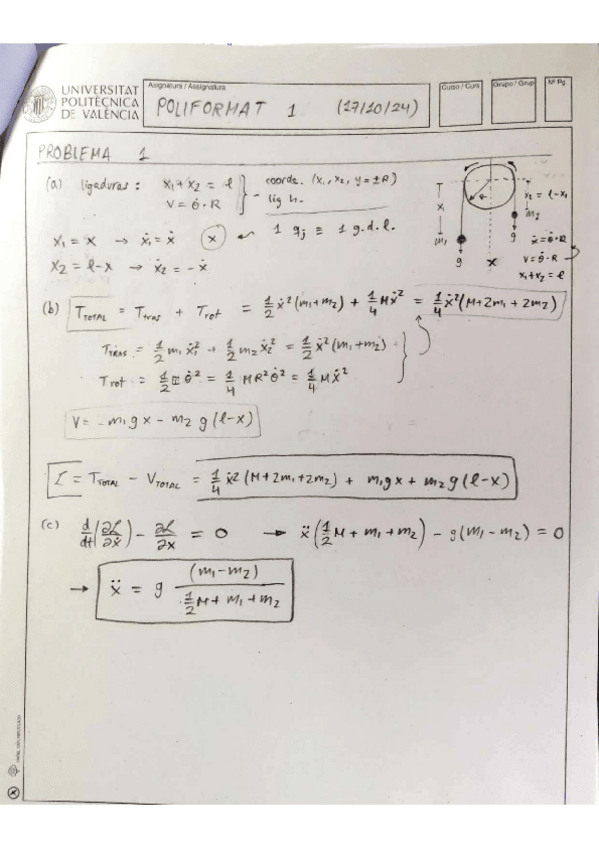 UNIVERSITAT
POLITÈCNICA
DE VALÈNCIA
Asignatura / Assignatura
POLIFORMAT 1 (17/10/24)
Curso / Curs
Grupo / Grup
Nº Pg.
PROBLEMA 1
(a) ligaduras: x₁+x₂ = l
V = θ̇·R
coorde. (x₁, x₂, y = ±R)
lig h.
x₁ = x → ẋ₁ = ẋ
x₂ = l-x → ẋ₂ = -ẋ
(x) 1 qⱼ ≡ 1 g.d.l.
R
x₁
x₂ = l-x₁
m₁
m₂
g
g
x
ẋ = θ̇·R
V = θ̇·R
x₁+x₂ = l
(b) T_TOTAL = T_tras + T_rot = 1/2 ẋ²(m₁+m₂) + 1/4 Mẋ² = 1/4 ẋ²(M+2m₁+2m₂)
T_tras = 1/2 m₁ẋ₁² + 1/2 m₂ẋ₂² = 1/2 ẋ²(m₁+m₂)
T_rot = 1/2 I θ̇² = 1/4 MR²θ̇² = 1/4 Mẋ²
V = -m₁gx - m₂g(l-x)
L = T_TOTAL - V_TOTAL = 1/4 ẋ²(M+2m₁+2m₂) + m₁gx + m₂g(l-x)
(c) d/dt(∂L/∂ẋ) - ∂L/∂x = 0 → ẍ(1/2 M + m₁ + m₂) - g(m₁-m₂) = 0
→ ẍ = g (m₁-m₂)/(1/2 M + m₁ + m₂)